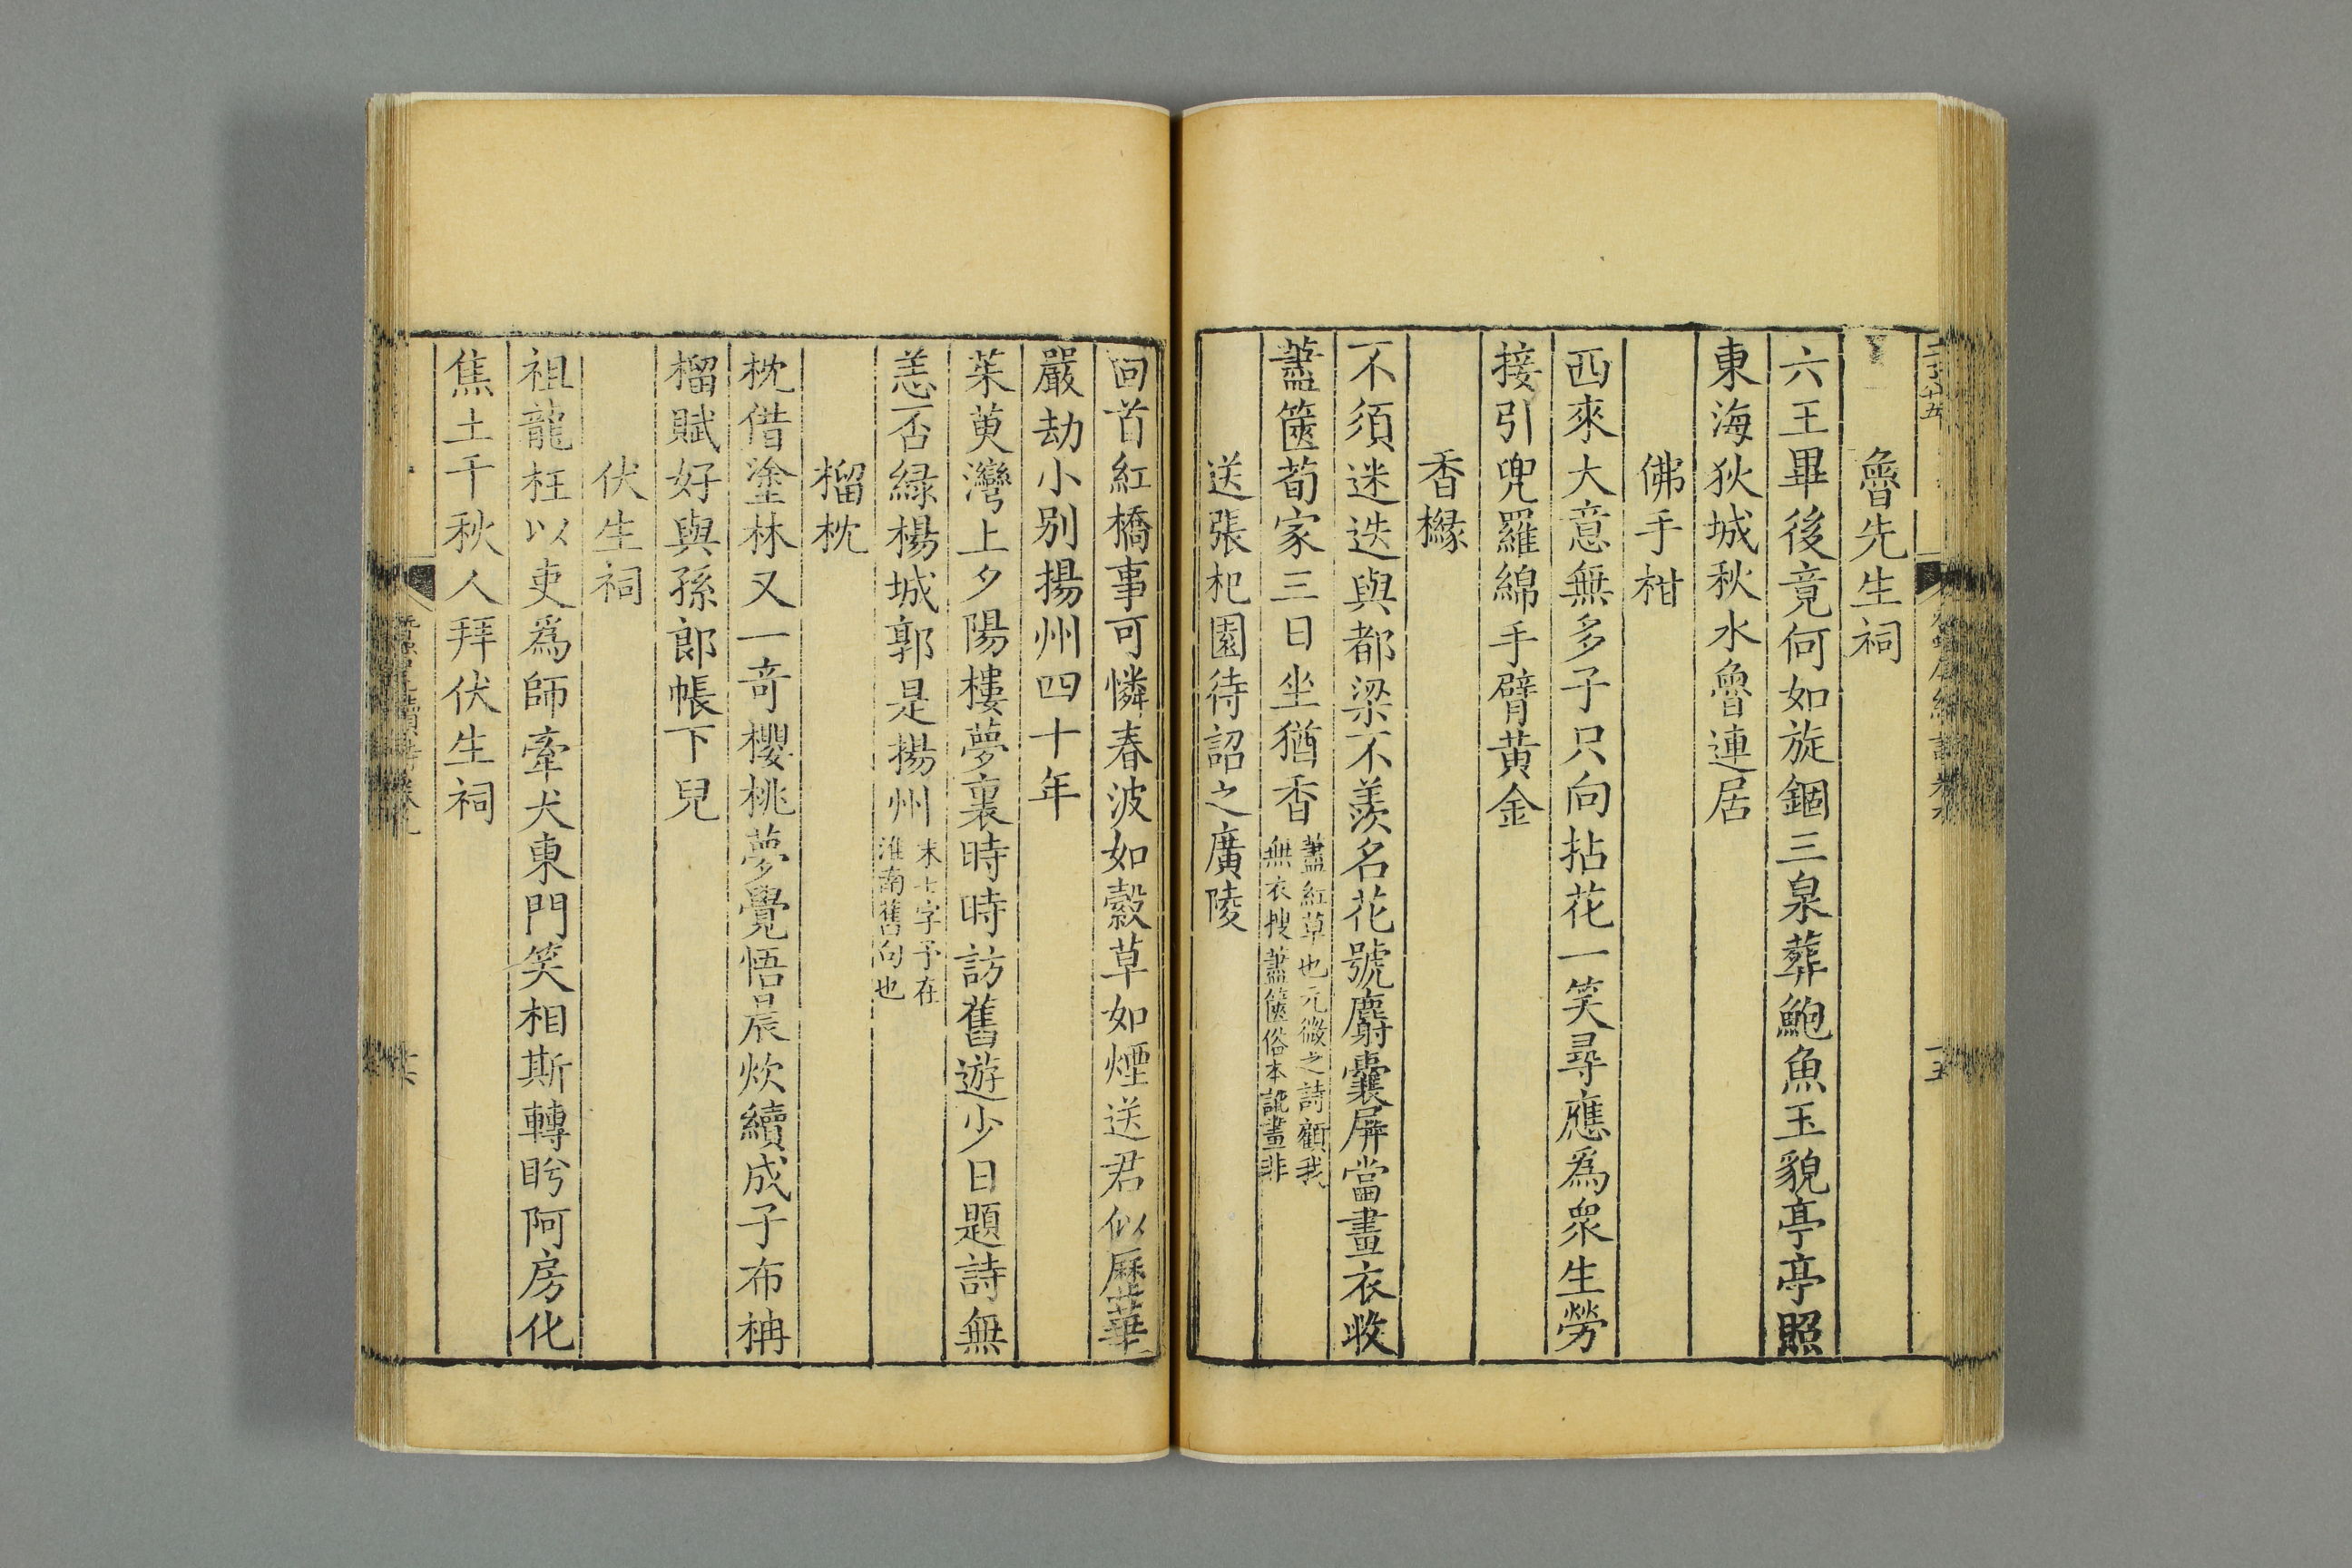 魯先生祠
六王畢後竟何如旋錮三泉葬鮑魚玉貌亭亭照
東海狄城秋水魯連居
佛手柑
西來大意無多子只向拈花一笑尋應爲衆生勞
接引兜羅綿手臂黄金
香櫞
不須迷迭與都梁不羨名花號麝囊屏當畫衣收
藎篋荀家三日坐猶香
藎紅草也元微之詩顧我
無衣搜藎篋俗本訛畫非
送張杞園待詔之廣陵
回首紅橋事可憐春波如縠草如煙送君似歷華
嚴劫小别揚州四十年
茱萸灣上夕陽樓夢裏時時訪舊遊少日題詩無
恙否緑楊城郭是揚州
末七字予在
淮南舊句也
榴枕
枕借塗林又一奇櫻桃夢覺悟晨炊續成子布柟
榴賦好與孫郎帳下兒
伏生祠
祖龍枉以吏爲師牽犬東門笑相斯轉盻阿房化
焦土千秋人拜伏生祠